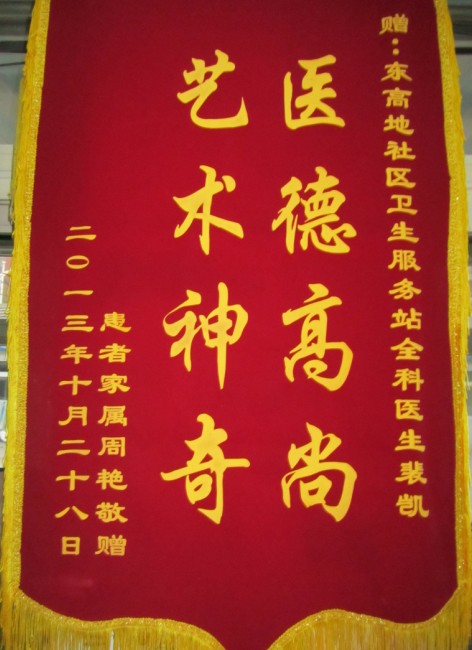 赠：东高地社区卫生服务站全科医生裴凯
医德高尚
艺术神奇
患者家属周艳敬赠
二〇一三年十月二十八日